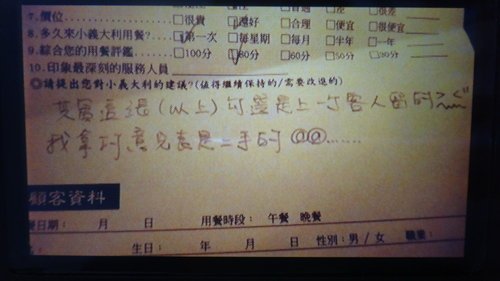 7.價位 □很貴 □還好 □合理 □便宜 □很便宜
8.多久來小義大利用餐? □第一次 □每星期 □每月 □半年 □一年
9.綜合您的用餐評鑑 □100分 □80分 □60分 □50分
10.印象最深刻的服務人員
◎請提出您對小義大利的建議?(值得繼續保持的/需要改進的)
其實這張(以上)勾選是上一位客人留的>"<
我拿的意見表是二手的 @@......
顧客資料
日期: 月 日 用餐時段: 午餐 晚餐
生日: 年 月 日 性別:男/女 職業: